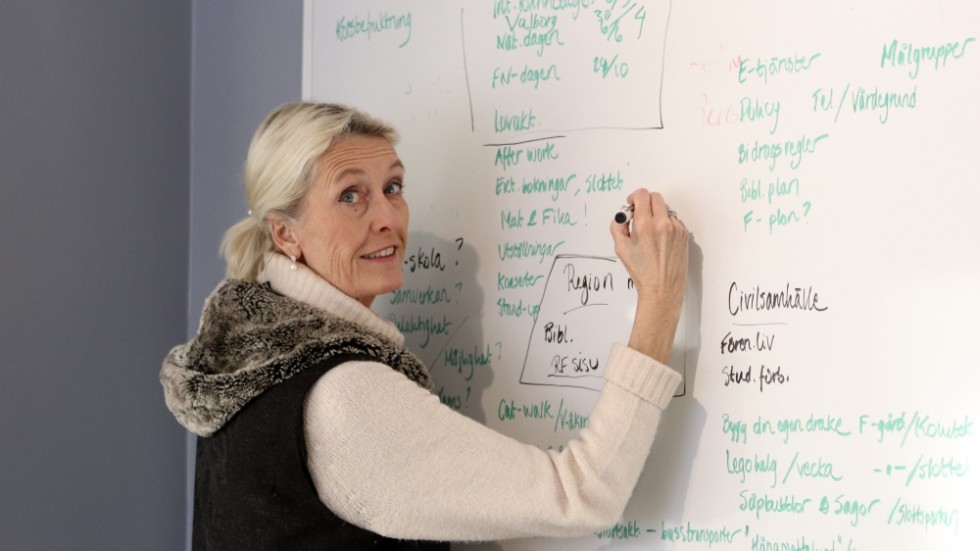 Korsbefruktning
Valborg 30/4
Nat. dagen 6/6
FN-dagen 24/10
Lovakt.
After work
Ext. bokningar, slottet
Mat & Fika!
Utställningar
Konserter
Stand-up
-skola ?
Samverkan ?
Delaktighet/
/Möjlighet?
Region
Bibl.
RF SISU
Cat-walk /
E-tjänster
Målgrupper
Policy
Tel. / Värdegrund
Bidragsregler
Bibl. plan
F-plan?
Civilsamhälle
Fören.liv
Stud.förb.
Bygg din egen drake F-gård/Komtek
Legohelg / vecka -"-/slotte
Såpbubblor & Sagor /Slottsparken
- busstransporter